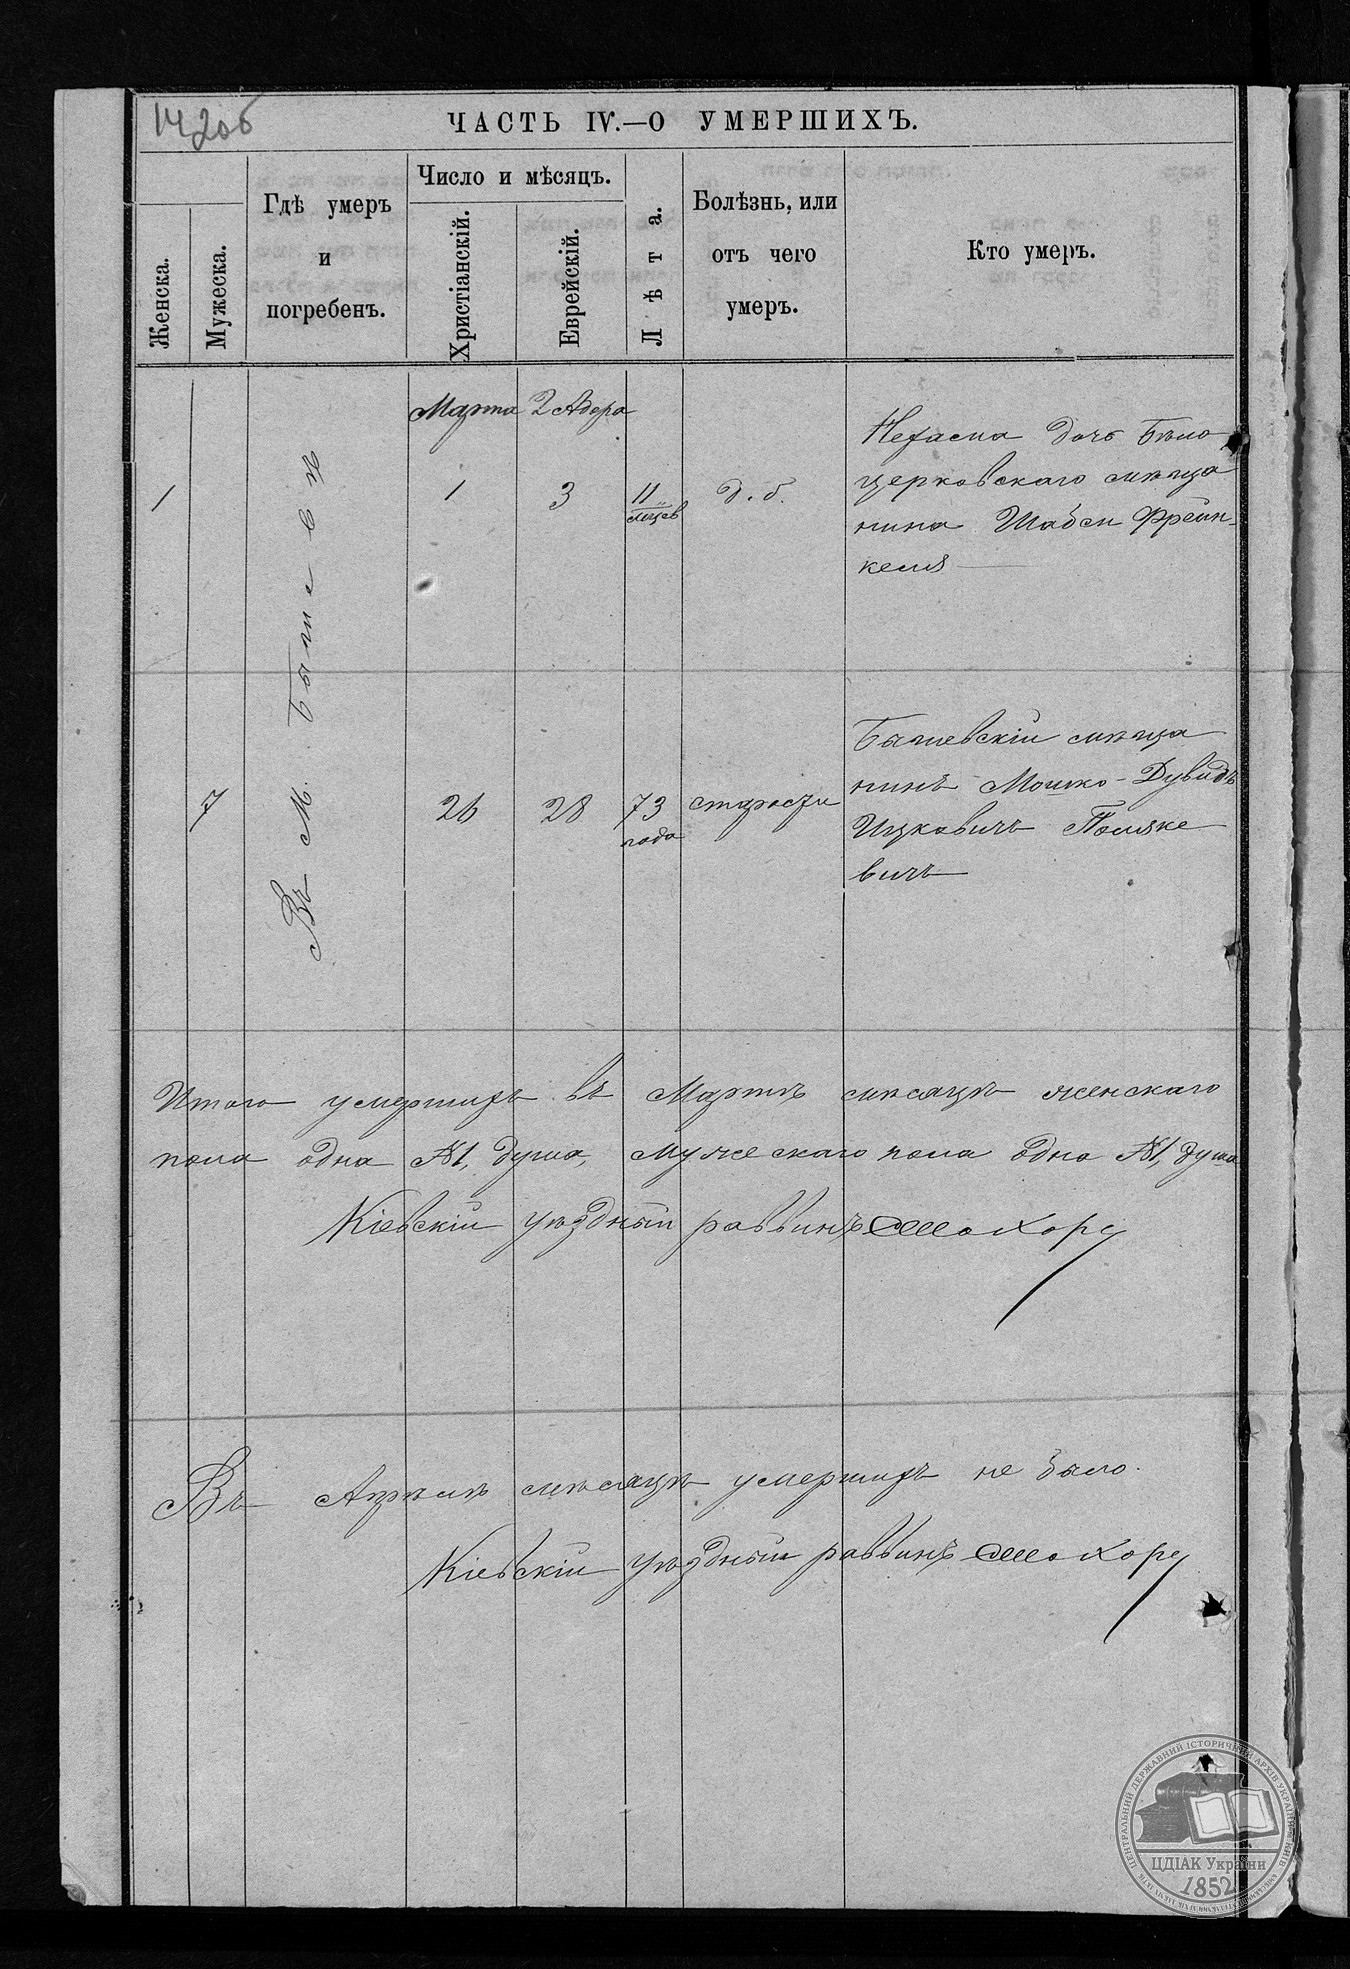 142об
ЧАСТЬ IV.—О УМЕРШИХЪ.
Женска.
Мужеска.
Гдѣ умеръ
и
погребенъ.
Число и мѣсяцъ.
Христіанскій.
Еврейскій.
Лѣта.
Болѣзнь, или
отъ чего
умеръ.
Кто умеръ.
Въ м. Бышевѣ
Марта 2 Адера
1
1
3
11
мѣсцев
д. б.
Нехама дочь Бѣло
церковскаго мѣща
нина Шабси Френ-
келя
7
26
28
73
года
старости
Бышевскій мѣща
нинъ Мошко-Дувидъ
Ицковичъ Поляке
вичъ
Итого умершихъ въ Мартѣ мѣсяцѣ женскаго
пола одна №1, душа, мужескаго пола одна №1, душа
Кіевскій уѣздный раввинъ
Въ Апрѣлѣ мѣсяцѣ умершихъ не было.
Кіевскій уѣздный раввинъ
ЦЕНТРАЛЬНИЙ ДЕРЖАВНИЙ ІСТОРИЧНИЙ АРХІВ УКРАЇНИ
ЦДІАК України
1852